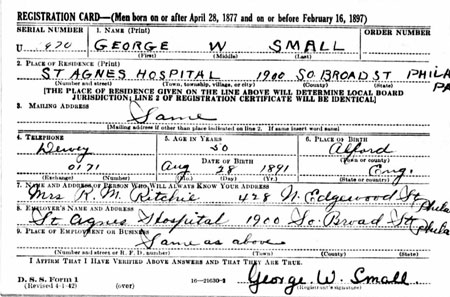 REGISTRATION CARD—(Men born on or after April 28, 1877 and on or before February 16, 1897)
SERIAL NUMBER 1. NAME (Print) ORDER NUMBER
U 970 GEORGE W SMALL
(First) (Middle) (Last)
2. PLACE OF RESIDENCE (Print)
ST AGNES HOSPITAL 1900 SO. BROAD ST PHILA PA
(Number and street) (Town, township, village, or city) (County) (State)
[THE PLACE OF RESIDENCE GIVEN ON THE LINE ABOVE WILL DETERMINE LOCAL BOARD
JURISDICTION; LINE 2 OF REGISTRATION CERTIFICATE WILL BE IDENTICAL]
3. MAILING ADDRESS
Same
[Mailing address if other than place indicated on line 2. If same insert word same]
4. TELEPHONE 5. AGE IN YEARS 6. PLACE OF BIRTH
Dewey 50 Alford
DATE OF BIRTH (Town or county)
0171 Aug 28 1891 Eng.
(Exchange) (Number) (Mo.) (Day) (Yr.) (State or country)
7. NAME AND ADDRESS OF PERSON WHO WILL ALWAYS KNOW YOUR ADDRESS
Mrs. R. M. Ritchie 428 N. Edgewood St Phila
8. EMPLOYER'S NAME AND ADDRESS
St. Agnes Hospital 1900 So. Broad St Phila
9. PLACE OF EMPLOYMENT OR BUSINESS
Same as above
(Number and street or R. F. D. number) (Town) (County) (State)
I AFFIRM THAT I HAVE VERIFIED ABOVE ANSWERS AND THAT THEY ARE TRUE.
D. S. S. Form 1
(Revised 4-1-42) (over) 16—21630-2 George W. Small
(Registrant's signature)